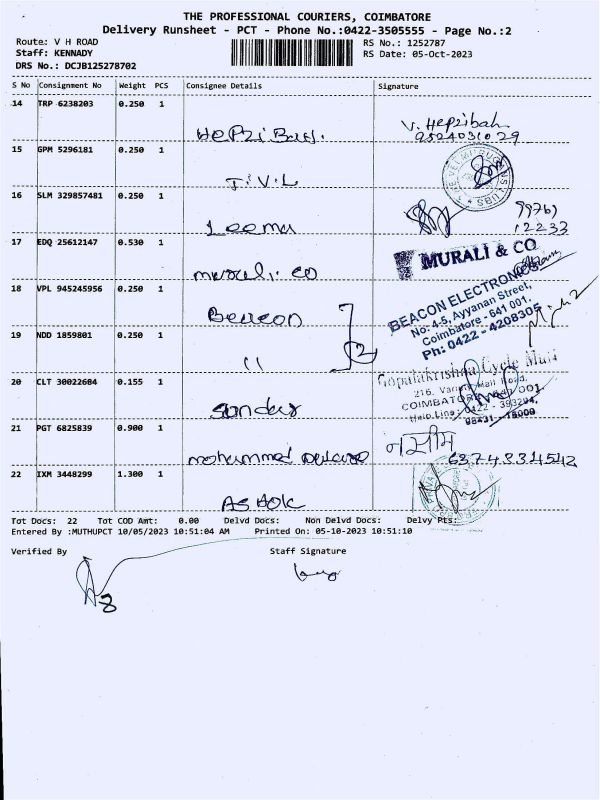 THE PROFESSIONAL COURIERS, COIMBATORE
Delivery Runsheet - PCT - Phone No.:0422-3505555 - Page No.:2
Route: V H ROAD
RS No.: 1252787
Staff: KENNADY
RS Date: 05-Oct-2023
DRS No.: DCJB125278702
S No Consignment No Weight PCS Consignee Details Signature
14 TRP 6238203 0.250 1
V. Hepzibah
HePziBah.
15 GPM 5296181 0.250 1
T.V.L
16 SLM 329857481 0.250 1
99761
12233
Leema
17 EDQ 25612147 0.530 1
MURALI & CO
murali. co
18 VPL 945245956 0.250 1
BEACON ELECTRONICS
No: 4-5, Ayyanan Street,
Coimbatore - 641 001.
Ph: 0422 - 4208305
Beacon
19 NDD 1859801 0.250 1
"
Gopalakrishna Cycle Mart
20 CLT 30022684 0.155 1
COIMBATORE
Sundar
21 PGT 6825839 0.900 1
नसीम
mohammed
22 IXM 3448299 1.300 1
ASHOK
Tot Docs: 22 Tot COD Amt: 0.00 Delvd Docs: Non Delvd Docs: Delvy Pts:
Entered By :MUTHUPCT 10/05/2023 10:51:04 AM Printed On: 05-10-2023 10:51:10
Verified By Staff Signature